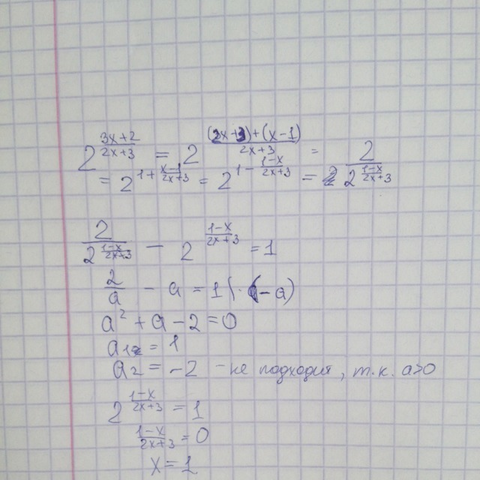 2^((3x+2)/(2x+3)) = 2^(((2x+3)+(x-1))/(2x+3)) =
= 2^(1+(x-1)/(2x+3)) = 2^(1-(1-x)/(2x+3)) = 2/2^((1-x)/(2x+3))
2/2^((1-x)/(2x+3)) - 2^((1-x)/(2x+3)) = 1
2/a - a = 1 (·(-a)
a² + a - 2 = 0
a₁ = 1
a₂ = -2 - не подходит, т.к. a>0
2^((1-x)/(2x+3)) = 1
(1-x)/(2x+3) = 0
x = 1